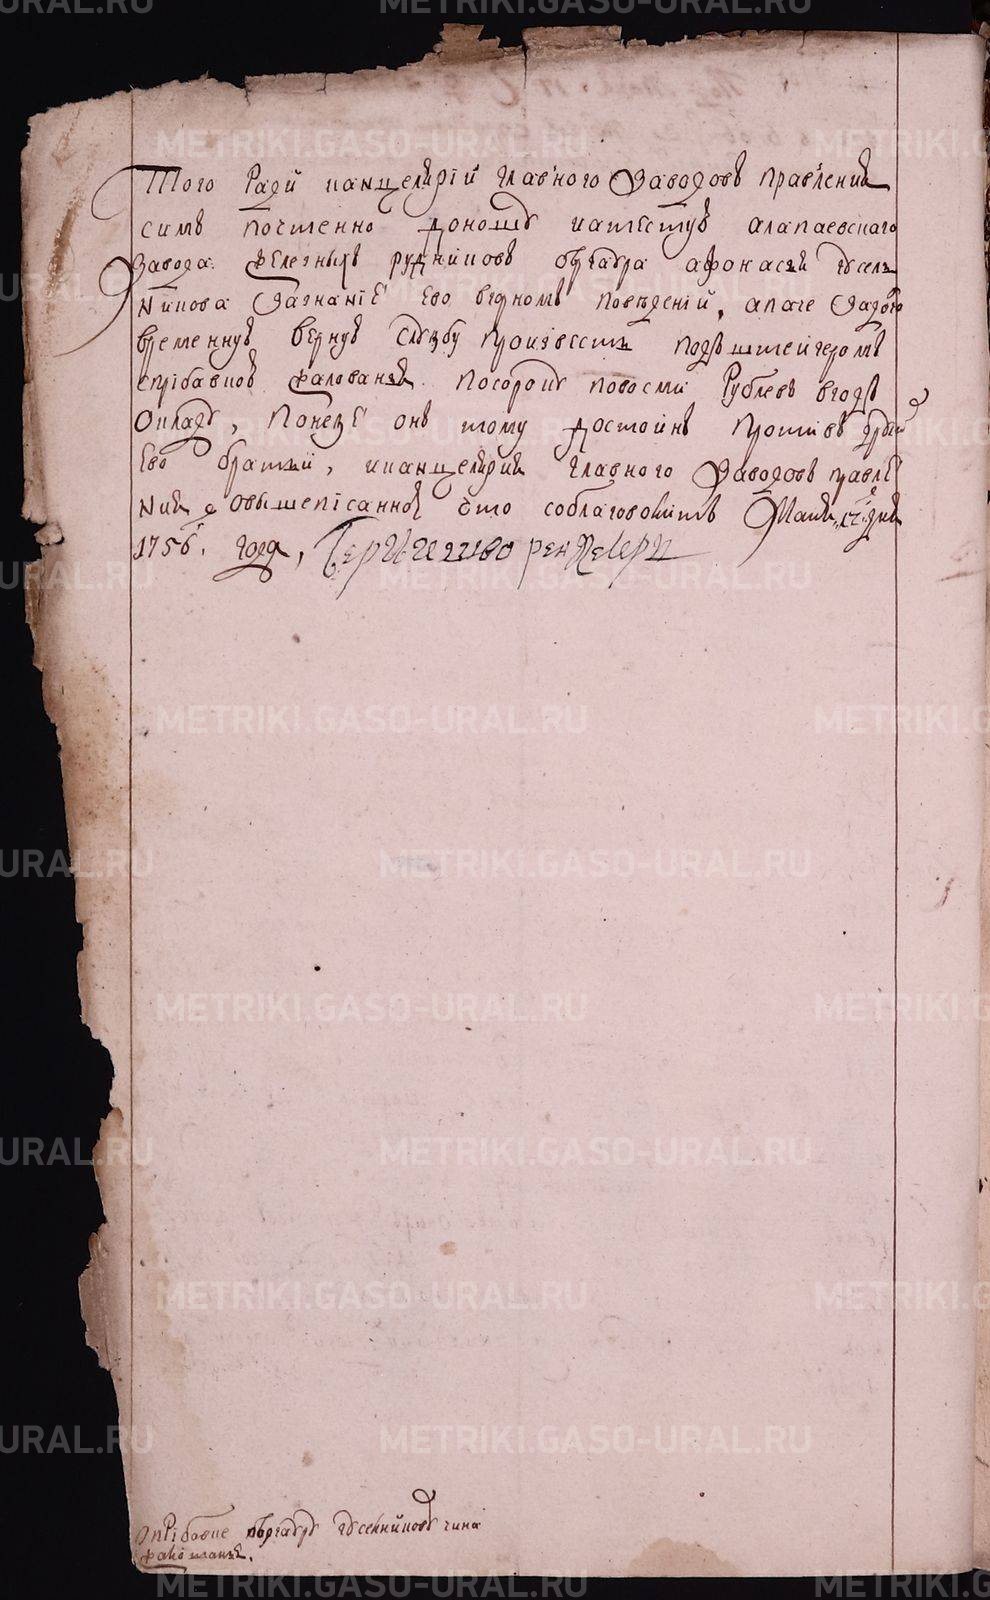 Того ради канцелярiи главного заводовъ правленiи
симъ почтенно доношу и атестую алапаевского
завода железныхъ рудниковъ бергаура афонасья гусел
никова за знанiе ево в рудномъ поведенiи, а паче за долго
временную верную службу произвесть под штейгеромъ
с прибавкою жалованья по сороку по восми рублевъ в годъ
окладу, понеже онъ тому достойнъ противъ други
ево братьи, и канцелярии главного заводовъ правле
нии о вышеписанной что соблаговолитъ Маия 17 дня
1756. года,
О прибавке бергауру гуселникову чина
жалованья.
METRIKI.GASO-URAL.RU